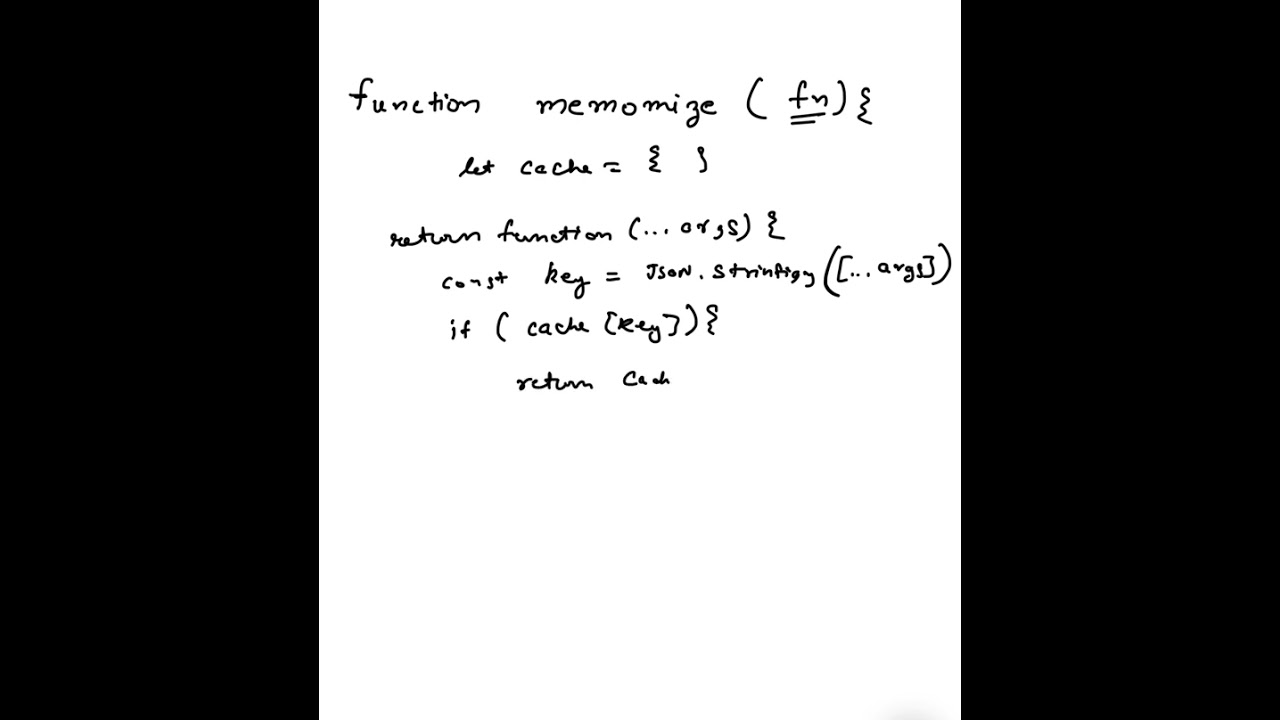 function memomize ( fn) {
let cache = { }
return function (... args) {
const key = JSON. Strinfigy ([... args])
if ( cache [key]) {
return Cach